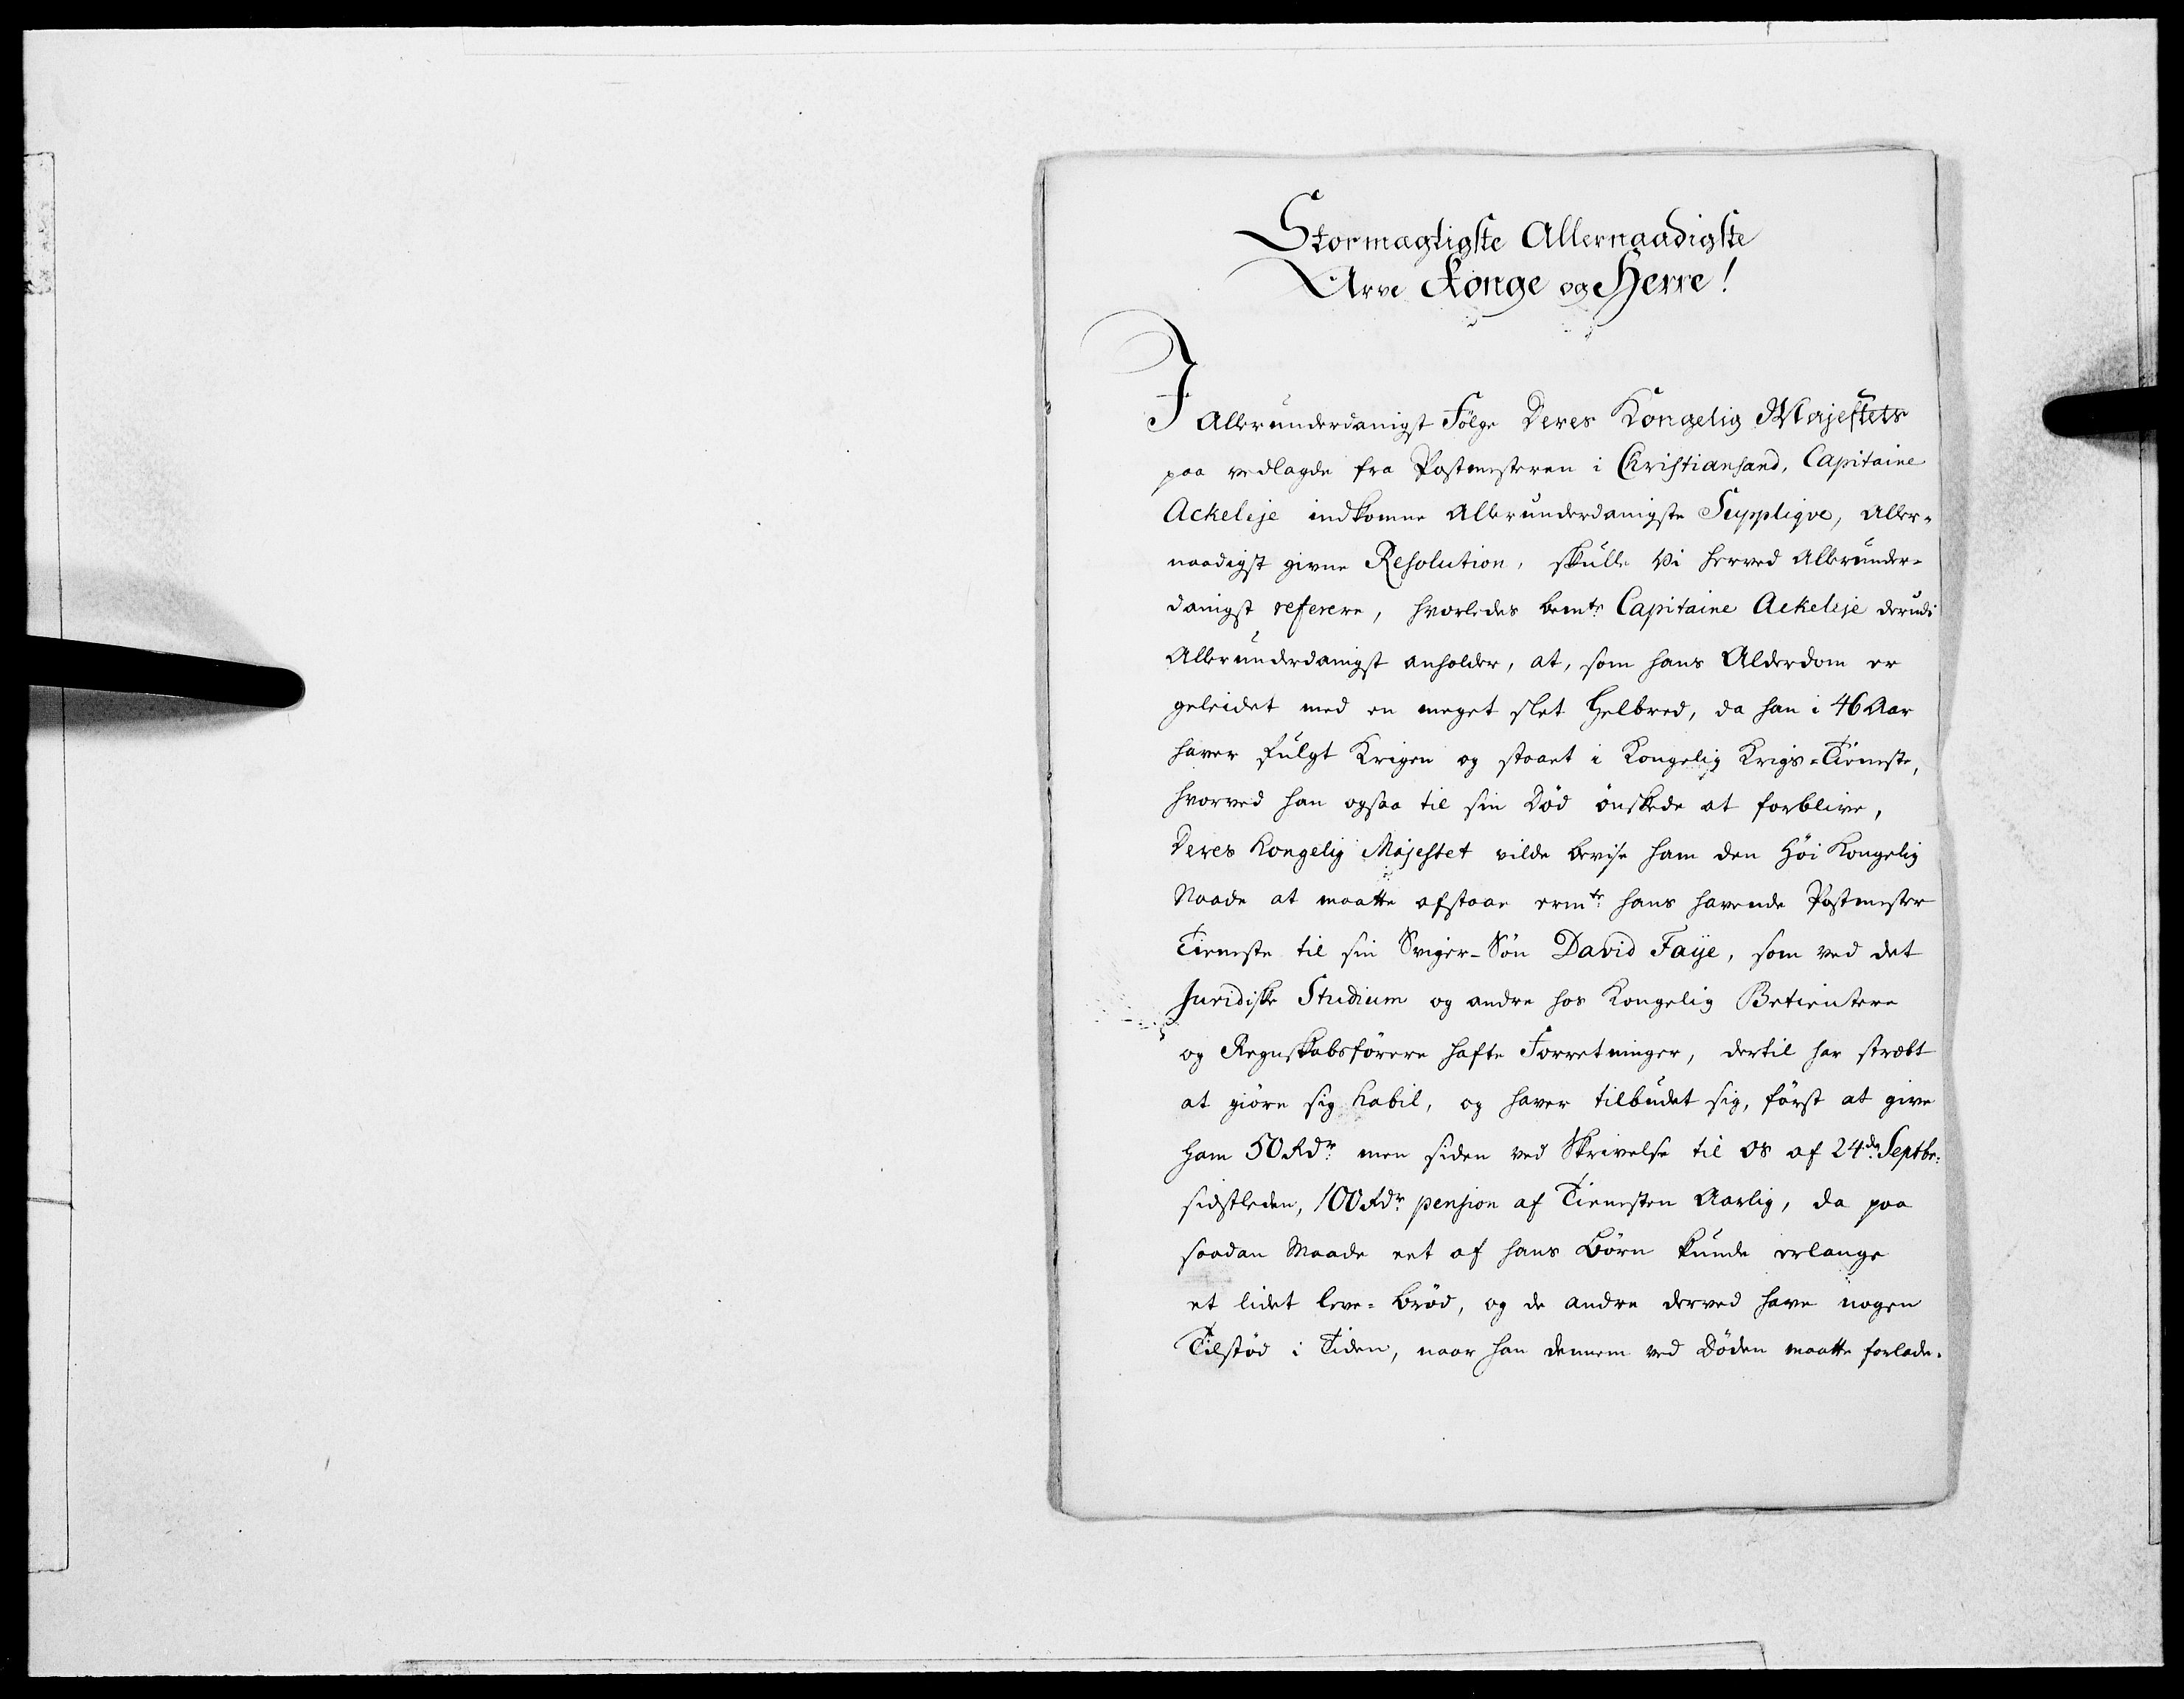 Stormægtigste Allernaadigste
Arve Konge og Herre!
I Allerunderdanigst Følge Deres Kongelig Majestets
paa vedlagde fra Postmesteren i Christiansand, Capitaine
Ackeleje indkomne Allerunderdanigste Supplique, Aller-
naadigst givne Resolution, skulle Vi herved Allerunder-
danigst referere, hvorledes bemte Capitaine Ackeleje derudi
Allerunderdanigst anholder, at, som hans Alderdom er
geleidet med en meget slet Helbred, da han i 46 Aar
haver fulgt Krigen og staaet i Kongelig Krigs-Tieneste,
hvorved han ogsaa til sin Død ønskede at forblive,
Deres Kongelig Majestet vilde bevise ham den Høi Kongelig
Naade at maatte afstaae ermte hans havende Postmester
Tieneste til sin Sviger-Søn David Faije, som ved det
Juridiske Studium og andre hos Kongelig Betientere
og Regnskabsførere hafte Forretninger, dertil har stræbt
at giøre sig habil, og haver tilbudet sig, først at give
ham 50 Rdr. men siden ved Skrivelse til os af 24de Septbr:
sidstleden, 100 Rdr. pension af Tienesten Aarlig, da paa
saadan Maade eet af hans Børn kunde erlange
et lidet leve-Brød, og de andre derved have nogen
Tilstød i Tiden, naar han dennem ved Døden maatte forlade.